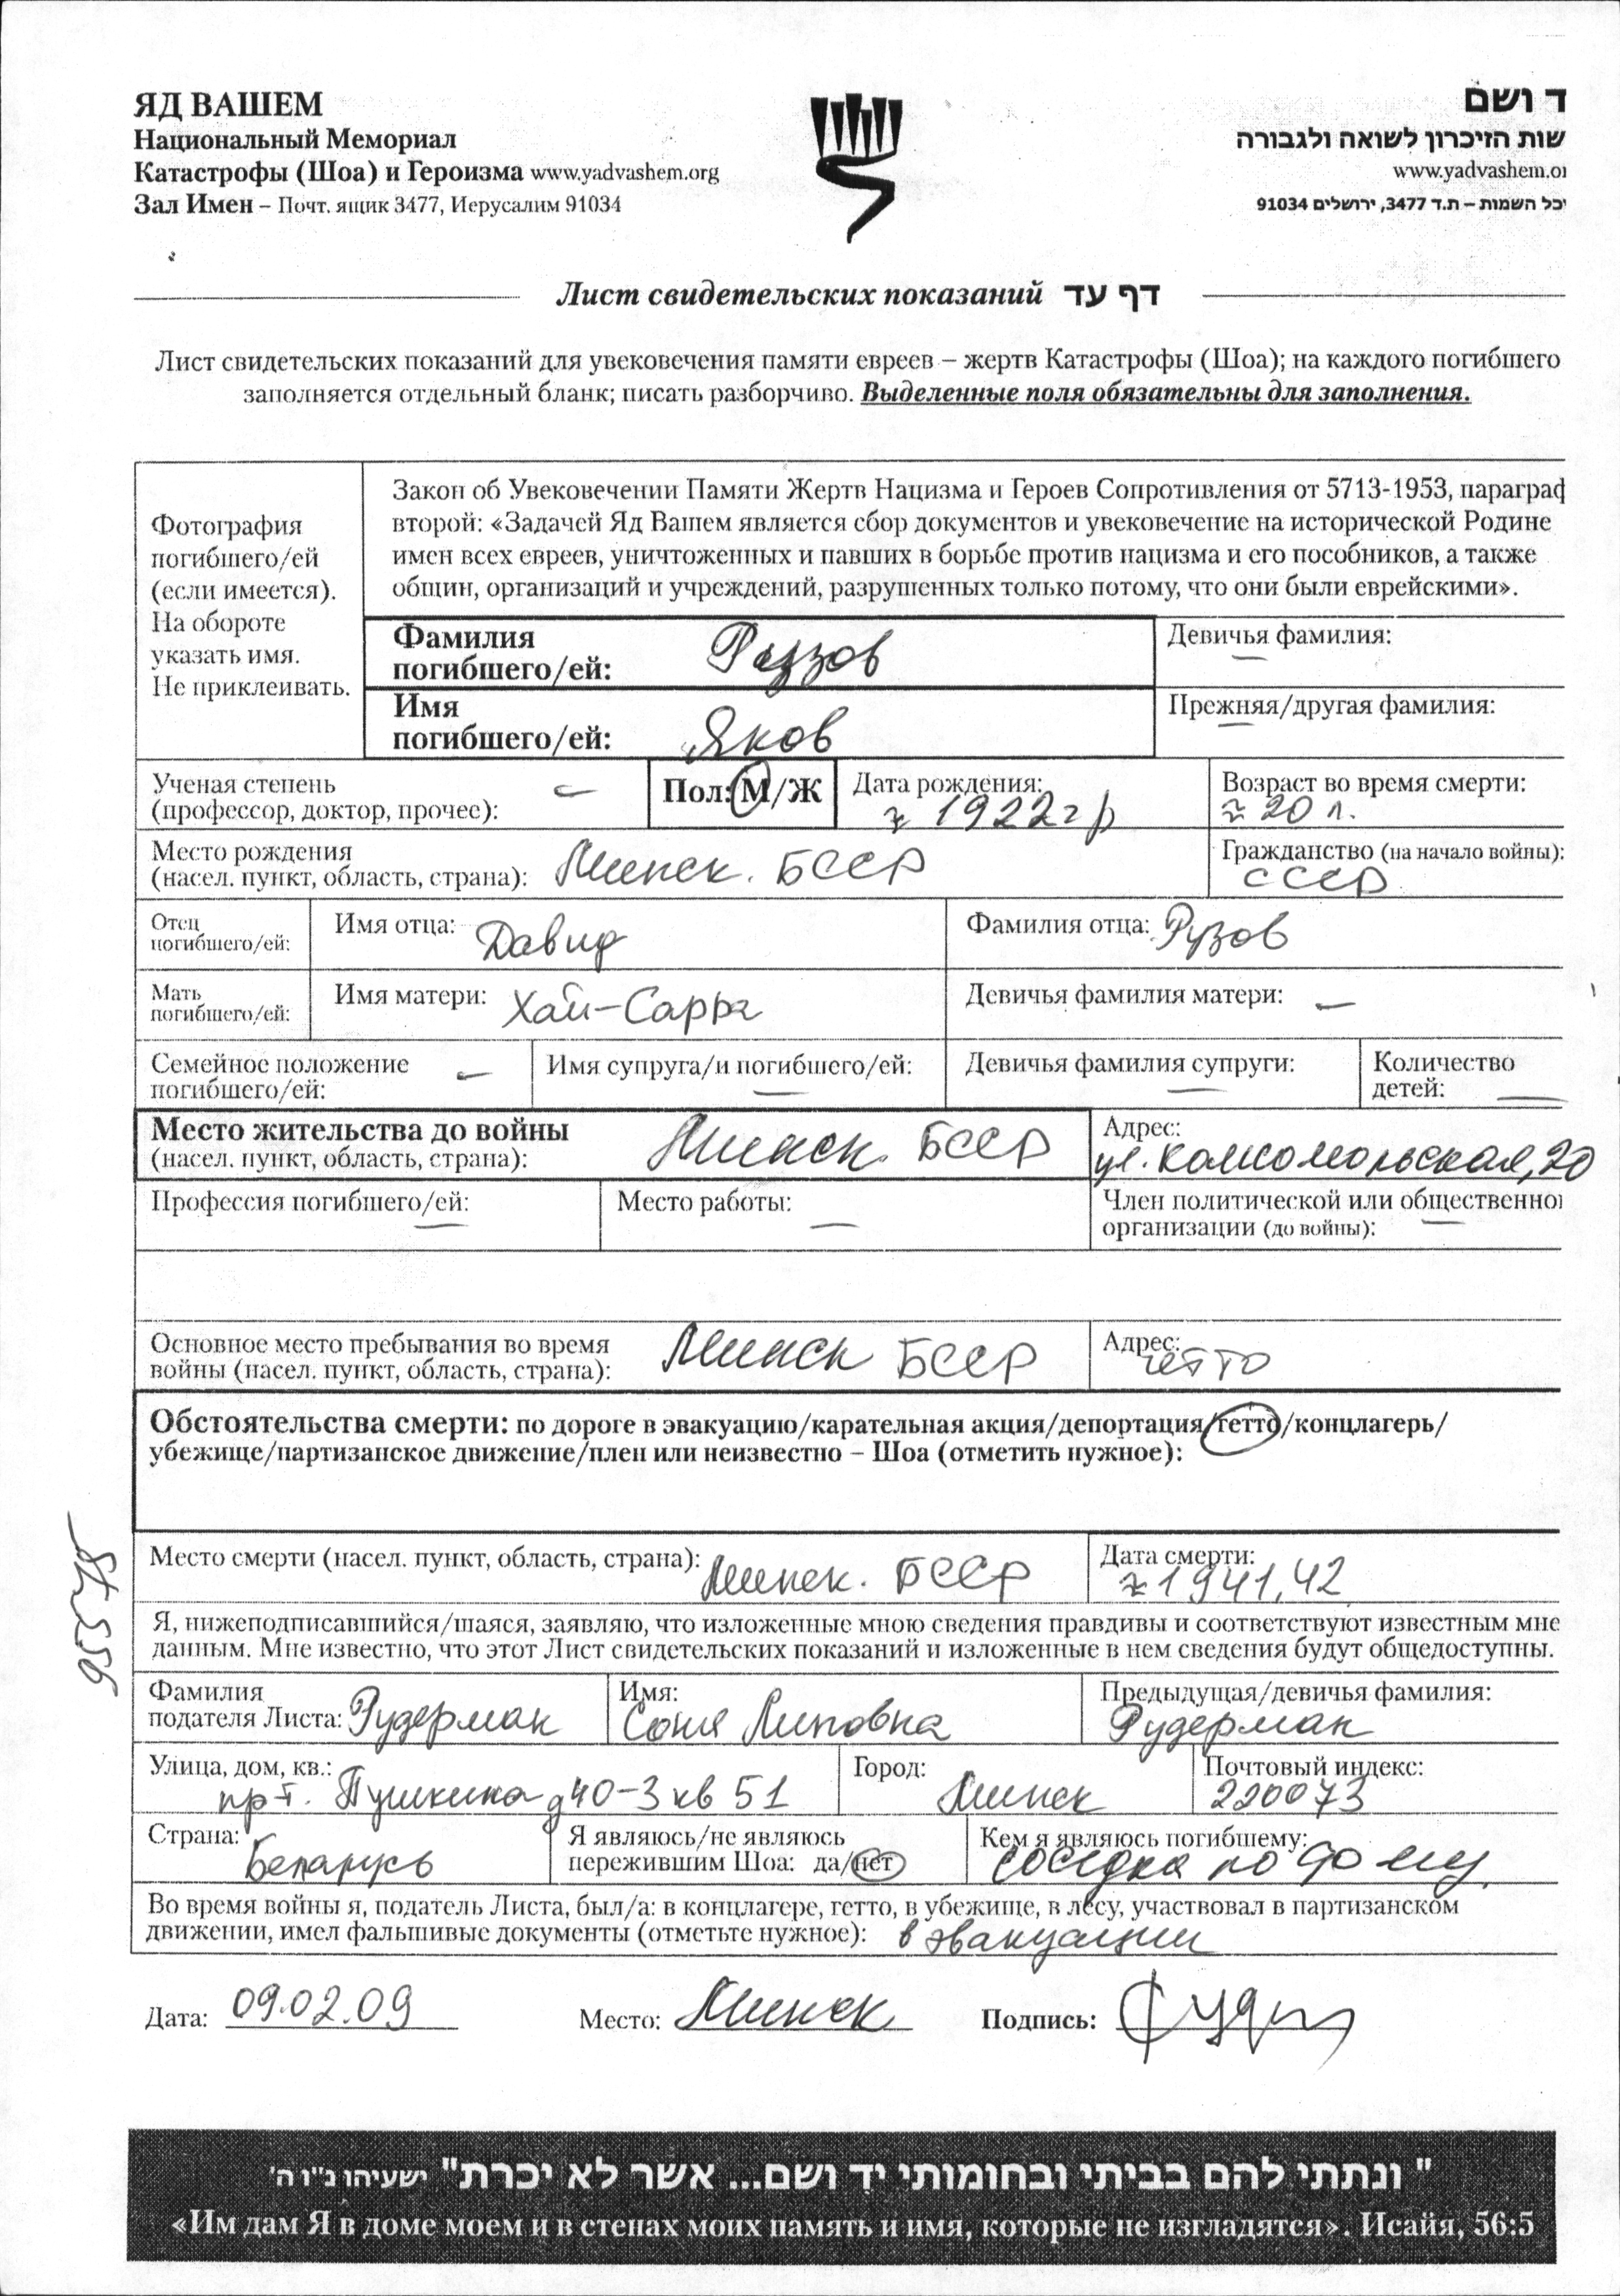 ЯД ВАШЕМ
Национальный Мемориал
Катастрофы (Шоа) и Героизма www.yadvashem.org
Зал Имен – Почт. ящик 3477, Иерусалим 91034
ד ושם
שות הזיכרון לשואה ולגבורה
www.yadvashem.or
יכל השמות – ת.ד 3477, ירושלים 91034
Лист свидетельских показаний דף עד
Лист свидетельских показаний для увековечения памяти евреев – жертв Катастрофы (Шоа); на каждого погибшего
заполняется отдельный бланк; писать разборчиво. Выделенные поля обязательны для заполнения.
Фотография
погибшего/ей
(если имеется).
На обороте
указать имя.
Не приклеивать.
Закон об Увековечении Памяти Жертв Нацизма и Героев Сопротивления от 5713-1953, параграф
второй: «Задачей Яд Вашем является сбор документов и увековечение на исторической Родине
имен всех евреев, уничтоженных и павших в борьбе против нацизма и его пособников, а также
общин, организаций и учреждений, разрушенных только потому, что они были еврейскими».
Фамилия
погибшего/ей:
Девичья фамилия: —
Имя
погибшего/ей: Яков
Прежняя/другая фамилия: —
Ученая степень
(профессор, доктор, прочес): —
Пол: М/Ж
Дата рождения:
≈ 1922 г р
Возраст во время смерти:
≈ 20 л.
Место рождения
(насел. пункт, область, страна): Минск. БССР
Гражданство (на начало войны):
СССР
Отец
погибшего/ей:
Имя отца: Давид
Фамилия отца: Рузов
Мать
погибшего/ей:
Имя матери: Хай-Сарра
Девичья фамилия матери: —
Семейное положение
погибшего/ей: —
Имя супруга/и погибшего/ей: —
Девичья фамилия супруги: —
Количество
детей: —
Место жительства до войны
(насел. пункт, область, страна): Минск. БССР
Адрес:
ул. Комсомольская, 20
Профессия погибшего/ей: —
Место работы: —
Член политической или общественной
организации (до войны): —
Основное место пребывания во время
войны (насел. пункт, область, страна): Минск БССР
Адрес:
гетто
Обстоятельства смерти: по дороге в эвакуацию/карательная акция/депортация/гетто/концлагерь/
убежище/партизанское движение/плен или неизвестно – Шоа (отметить нужное):
Место смерти (насел. пункт, область, страна): Минск. БССР
Дата смерти:
≈ 1941, 42
Я, нижеподписавшийся/шаяся, заявляю, что изложенные мною сведения правдивы и соответствуют известным мне
данным. Мне известно, что этот Лист свидетельских показаний и изложенные в нем сведения будут общедоступны.
Фамилия
подателя Листа: Рудерман
Имя:
Соня Липовна
Предыдущая/девичья фамилия:
Рудерман
Улица, дом, кв.:
пр-т. Пушкина д 40-3 кв 51
Город:
Минск
Почтовый индекс:
220073
Страна:
Беларусь
Я являюсь/не являюсь
пережившим Шоа: да/нет
Кем я являюсь погибшему:
соседка по дому
Во время войны я, податель Листа, был/а: в концлагере, гетто, в убежище, в лесу, участвовал в партизанском
движении, имел фальшивые документы (отметьте нужное): в эвакуации
Дата: 09.02.09 Место: Минск Подпись:
" ונתתי להם בביתי ובחומותי יד ושם... אשר לא יכרת" ישעיהו נ"ו ה'
«Им дам Я в доме моем и в стенах моих память и имя, которые не изгладятся». Исайя, 56:5